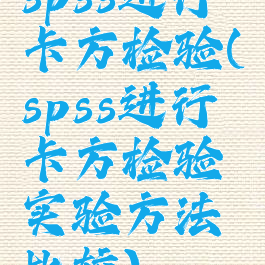 spss进行
卡方检验(
spss进行
卡方检验
实验方法
比较)